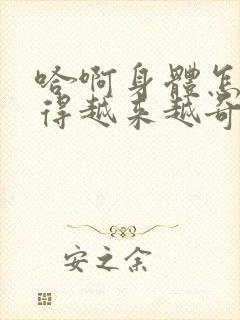 哈啊身體怎
得越来越奇
安之余